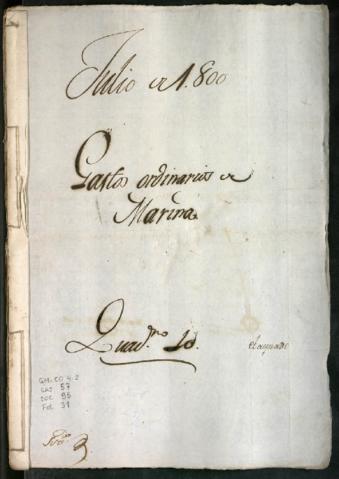 Julio de 1.800
Gastos ordinarios de
Marina
Quad.no 10.
GM-CO 4-2
CAJ. 57
DOC 95
Fol. 31